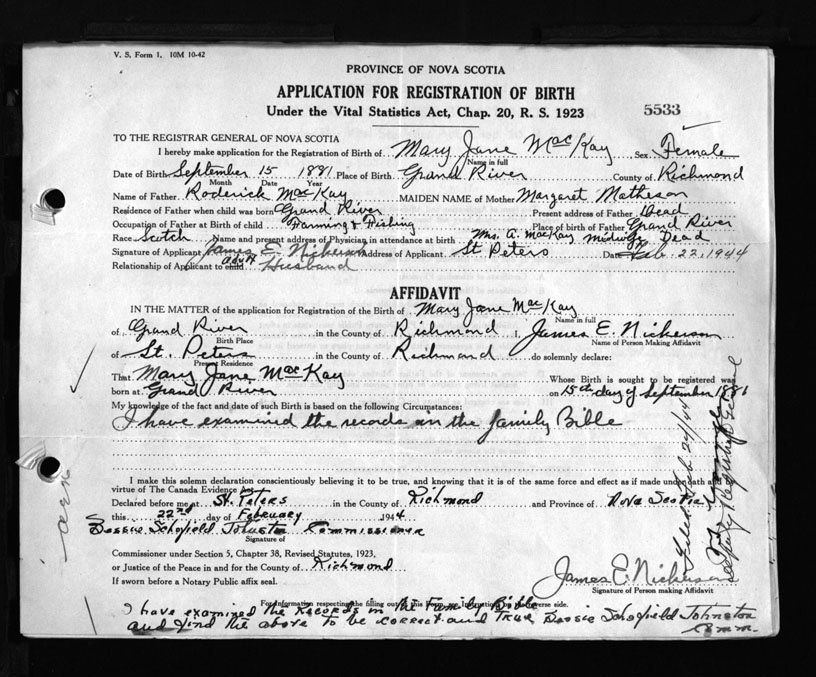 V. S. Form 1. 10M 10-42
PROVINCE OF NOVA SCOTIA
APPLICATION FOR REGISTRATION OF BIRTH
Under the Vital Statistics Act, Chap. 20, R. S. 1923
5533
TO THE REGISTRAR GENERAL OF NOVA SCOTIA
I hereby make application for the Registration of Birth of Mary Jane MacKay Sex Female
Name in full
Date of Birth September 15 1881 Place of Birth Grand River County of Richmond
Month Date Year
Name of Father Roderick MacKay MAIDEN NAME of Mother Margaret Matheson
Residence of Father when child was born Grand River Present address of Father Dead
Occupation of Father at Birth of child Farming & Fishing Place of birth of Father Grand River
Race Scotch Name and present address of Physician in attendance at birth Mrs. A. MacKay midwife Dead
Signature of Applicant James E. Nickerson Address of Applicant St Peters Date Feb. 22, 1944
Relationship of Applicant to child Husband
AFFIDAVIT
IN THE MATTER of the application for Registration of the Birth of Mary Jane MacKay
Name in full
of Grand River in the County of Richmond I, James E. Nickerson
Birth Place Name of Person Making Affidavit
of St. Peters in the County of Richmond do solemnly declare:
Present Residence
That Mary Jane MacKay Whose Birth is sought to be registered was
born at Grand River on 15th day of September 1881
My knowledge of the fact and date of such Birth is based on the following Circumstances:
I have examined the records in the family Bible
I make this solemn declaration conscientiously believing it to be true, and knowing that it is of the same force and effect as if made under oath
virtue of The Canada Evidence Act
Declared before me at St. Peters in the County of Richmond and Province of Nova Scotia
this 22nd day of February 1944
Bessie Schofield Johnston Commissioner
Signature of
Commissioner under Section 5, Chapter 38, Revised Statutes, 1923,
or Justice of the Peace in and for the County of Richmond
If sworn before a Notary Public affix seal.
James E. Nickerson
Signature of Person making Affidavit
For Information respecting the filling out of this Form, see Instructions on reverse side.
I have examined the Records in the Family Bible
and find the above to be correct and True Bessie Schofield Johnston
Comm.